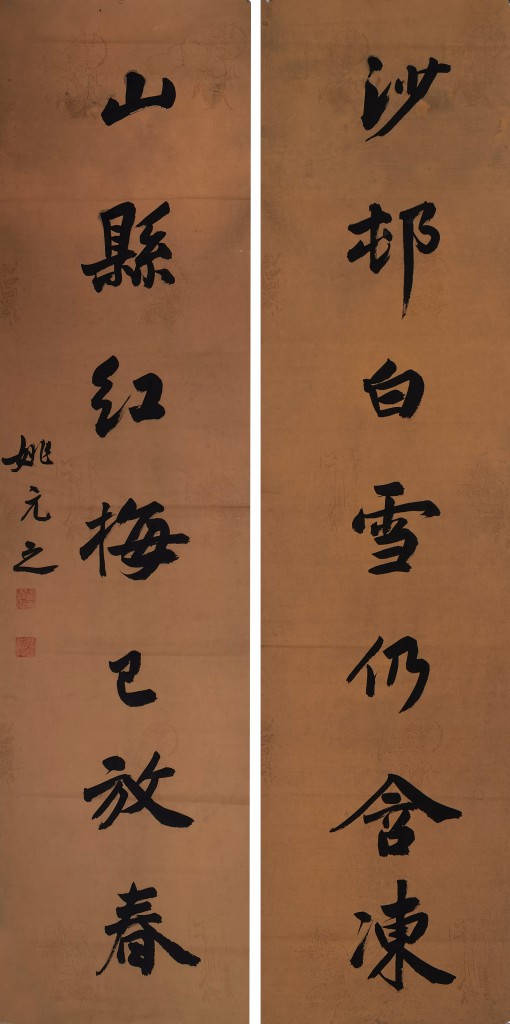 沙邨白雪仍含凍
山縣紅梅已放春
姚元之